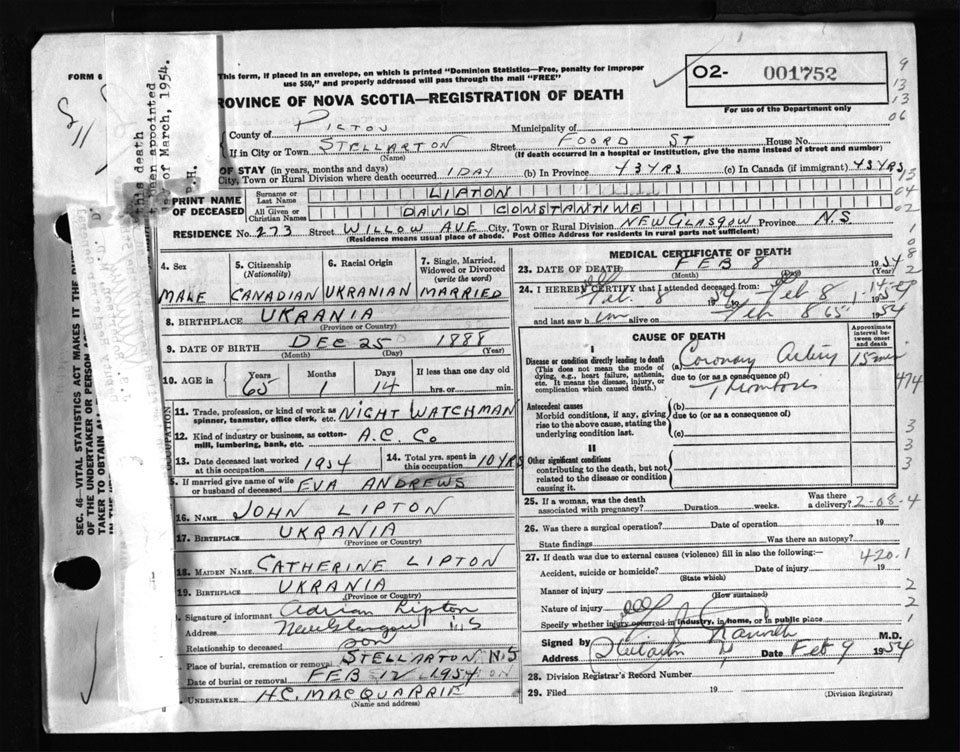 FORM 6
This form, if placed in an envelope, on which is printed "Dominion Statistics—Free, penalty for improper
use $50," and properly addressed will pass through the mail "FREE"
O2- 001752
For use of the Department only
9
13
13
06
15
04
02
1
0
8
2
this death
been appointed
y of March, 1954.
P.H.
SEC. 46- VITAL STATISTICS ACT MAKES IT THE DU
OF THE UNDERTAKER OR PERSON
TAKER TO OBTAIN
PROVINCE OF NOVA SCOTIA—REGISTRATION OF DEATH
County of PICTOU Municipality of
If in City or Town STELLARTON Street FOORD ST House No.
(Name) (If death occurred in a hospital or institution, give the name instead of street and number)
OF STAY (in years, months and days)
City, Town or Rural Division where death occurred 1 DAY (b) In Province 43 YRS (c) In Canada (if immigrant) 43 YRS
PRINT NAME OF DECEASED
Surname or Last Name LIPTON
All Given or Christian Names DAVID CONSTANTINE
RESIDENCE No. 273 Street WILLOW AVE City, Town or Rural Division NEW GLASGOW Province N.S.
(Residence means usual place of abode. Post Office Address for residents in rural parts not sufficient)
4. Sex MALE
5. Citizenship (Nationality) CANADIAN
6. Racial Origin UKRANIAN
7. Single, Married, Widowed or Divorced (write the word) MARRIED
8. BIRTHPLACE UKRANIA
(Province or Country)
9. DATE OF BIRTH DEC 25 1888
(Month) (Day) (Year)
10. AGE in Years 65 Months 1 Days 14 If less than one day old
hrs. or min.
OCCUPATION
11. Trade, profession, or kind of work as spinner, teamster, office clerk, etc. NIGHT WATCHMAN
12. Kind of industry or business, as cotton-mill, lumbering, bank, etc. A.C. Co
13. Date deceased last worked at this occupation 1954 14. Total yrs. spent in this occupation 10 YRS
5. If married give name of wife or husband of deceased EVA ANDREWS
16. NAME JOHN LIPTON
17. BIRTHPLACE UKRANIA
(Province or Country)
18. MAIDEN NAME CATHERINE LIPTON
19. BIRTHPLACE UKRANIA
(Province or Country)
Signature of informant Adrian Lipton
Address New Glasgow N S
Relationship to deceased son
Place of burial, cremation or removal STELLARTON N.S
Date of burial or removal FEB 12 1954
UNDERTAKER H.C. MACQUARRIE
(Name and address)
MEDICAL CERTIFICATE OF DEATH
23. DATE OF DEATH FEB 8 1954
(Month) (Day) (Year)
24. I HEREBY CERTIFY that I attended deceased from:
Feb. 8 1954 Feb 8 1954
and last saw him alive on Feb 8 1954
CAUSE OF DEATH
Approximate interval between onset and death
I
Disease or condition directly leading to death
(This does not mean the mode of dying, e.g., heart failure, asthenia, etc. It means the disease, injury, or complication which caused death.)
(a) Coronary Artery 15 min
due to (or as a consequence of)
Thrombosis
474
Antecedent causes
Morbid conditions, if any, giving rise to the above cause, stating the underlying condition last.
(b)
due to (or as a consequence of)
(c)
3
3
3
II
Other significant conditions
contributing to the death, but not related to the disease or condition causing it.
25. If a woman, was the death associated with pregnancy? Duration weeks. Was there a delivery? 2-08-4
26. Was there a surgical operation? Date of operation 19
State findings Was there an autopsy?
27. If death was due to external causes (violence) fill in also the following:— 420.1
Accident, suicide or homicide? Date of injury 19
(State which)
Manner of injury 2
(How sustained)
Nature of injury 2
Specify whether injury occurred in industry, in home, or in public place 1
Signed by M.D.
Address Date Feb 9 1954
28. Division Registrar's Record Number
29. Filed 19
(Division Registrar)